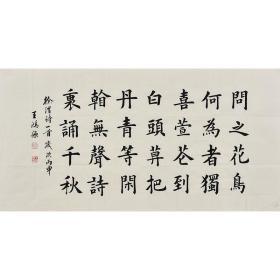 問之花鳥
何為者獨
喜萱花到
白頭莫把
丹青等閑
翰無聲詩
裏誦千秋
徐渭詩一首 歲次丙申
王鴻